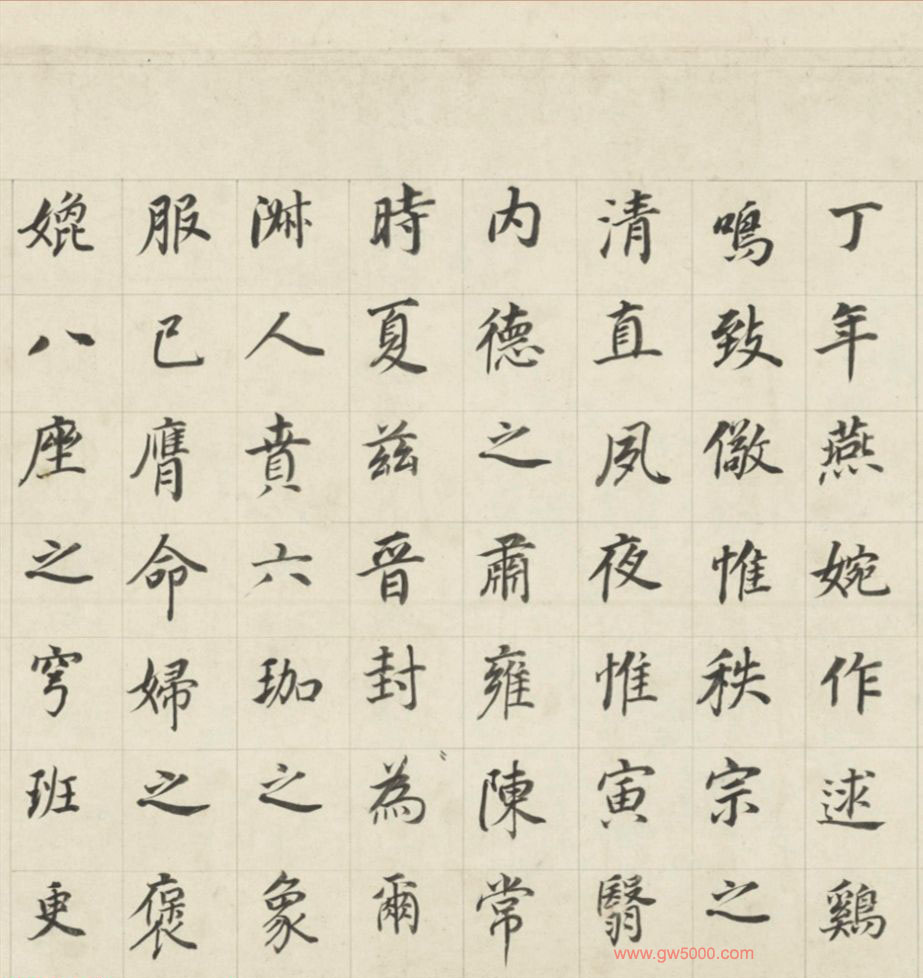 丁年燕婉作逑鷄
鳴致儆惟秩宗之
清直夙夜惟寅翳
内德之肅雍陳常
時夏茲晉封為爾
淋人賁六珈之象
服已膺命婦之褒
媲八座之穹班更
www.gw5000.com